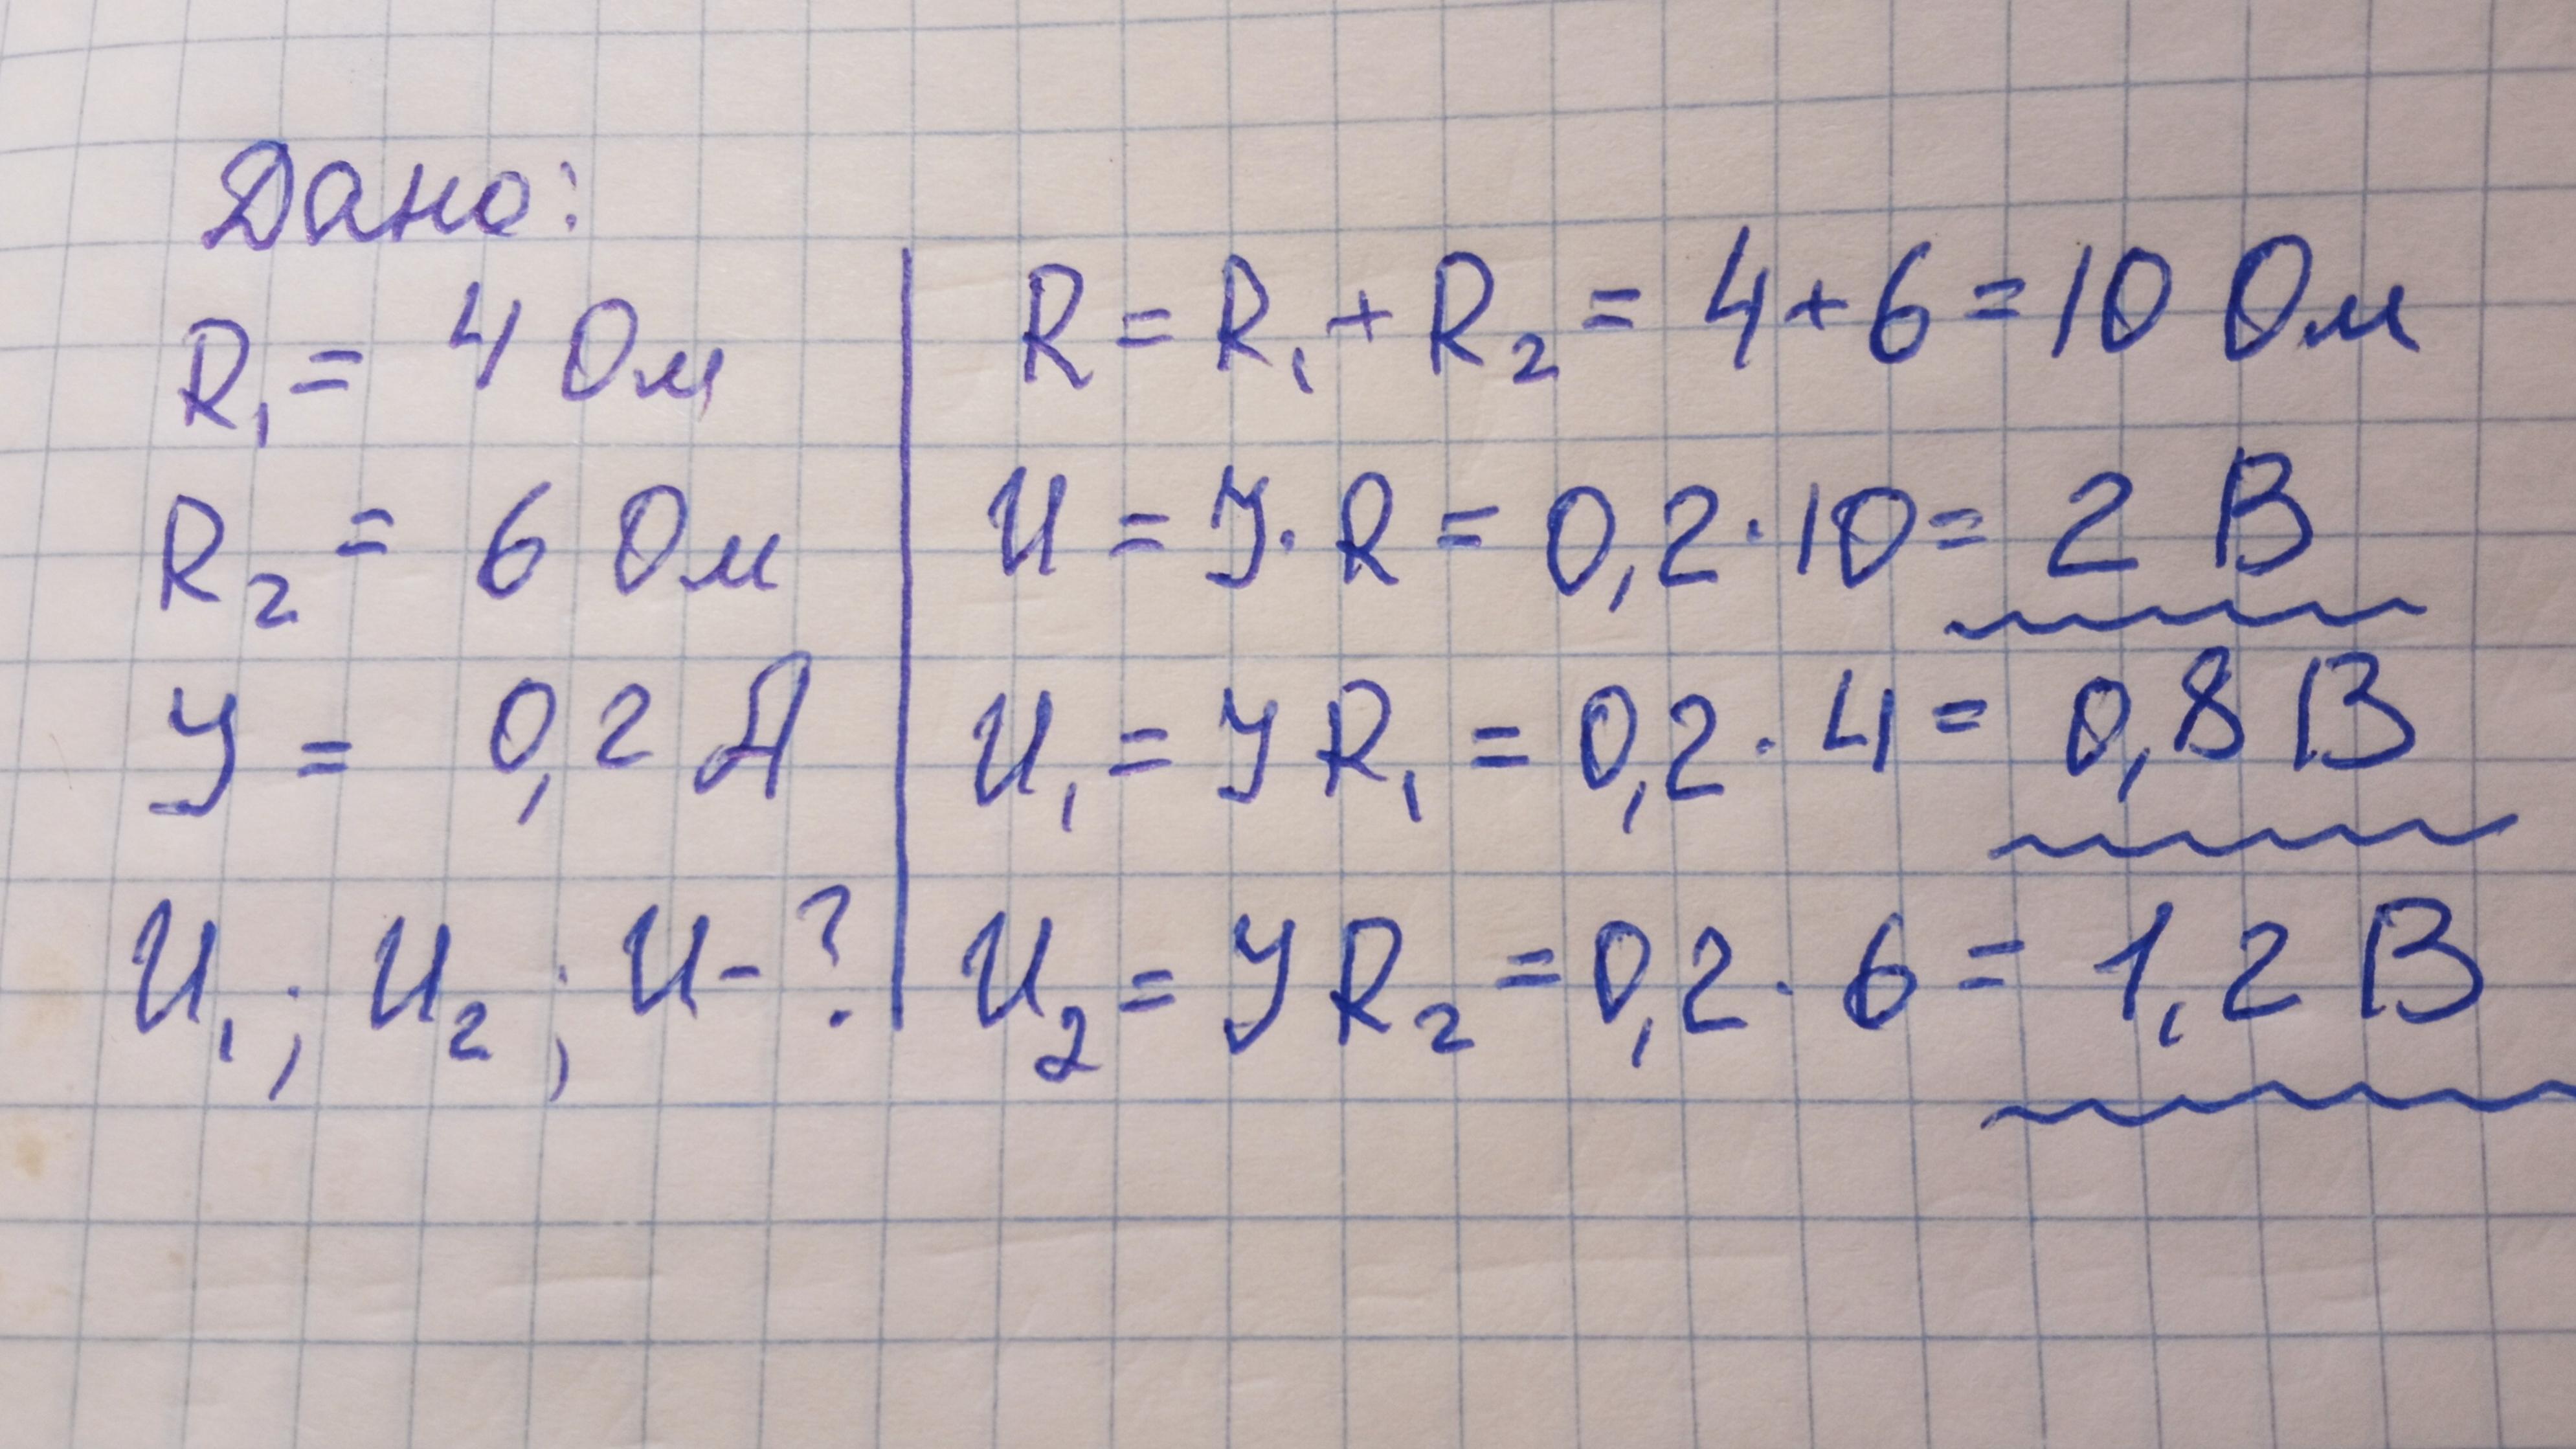 Дано:
R₁ = 4 Ом
R₂ = 6 Ом
У = 0,2 А
U₁; U₂; U - ?
R = R₁ + R₂ = 4 + 6 = 10 Ом
U = У · R = 0,2 · 10 = 2 В
U₁ = У R₁ = 0,2 · 4 = 0,8 В
U₂ = У R₂ = 0,2 · 6 = 1,2 В